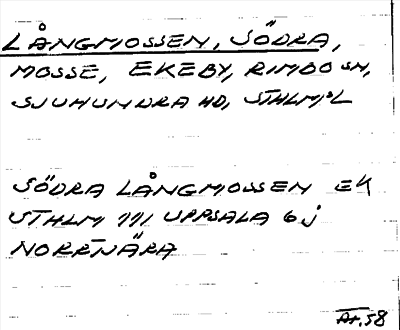 LÅNGMOSSEN, SÖDRA,
MOSSE, EKEBY, RIMBO SN,
SJUHUNDRA HD, STHLM:S L
SÖDRA LÅNGMOSSEN EK
STHLM 111 UPPSALA 6 j
NORRTNÄRA
Ar. 58